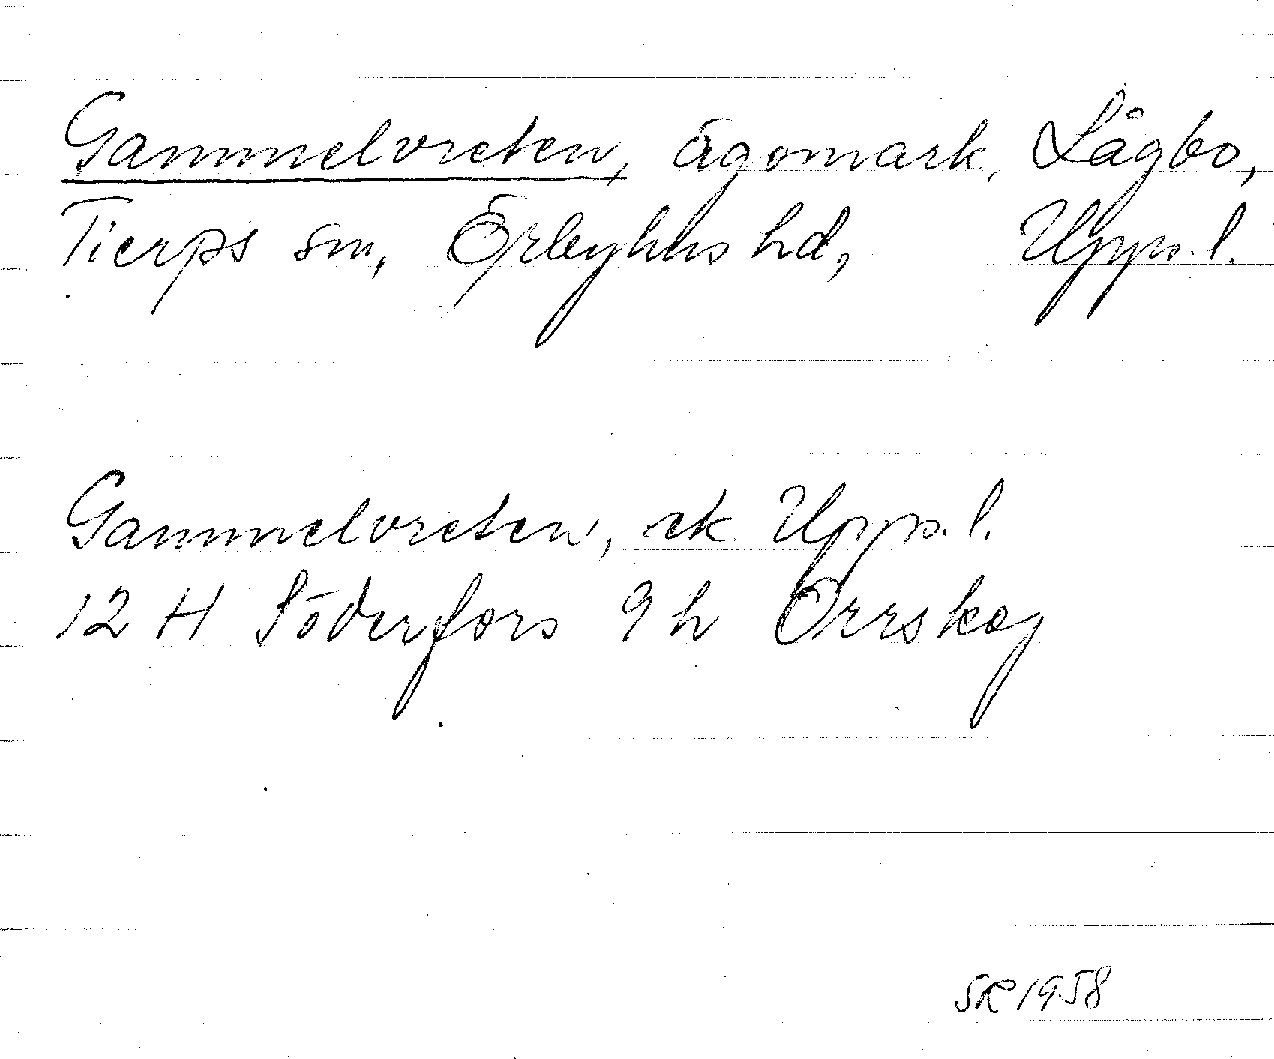 Gammelvreten, ägomark, Lågbo,
Tierps sn, Örbyhus hd, Uppl.
Gammelvreten, ek Uppl.
12 H Söderfors 9 h Orrskog
SR 1958